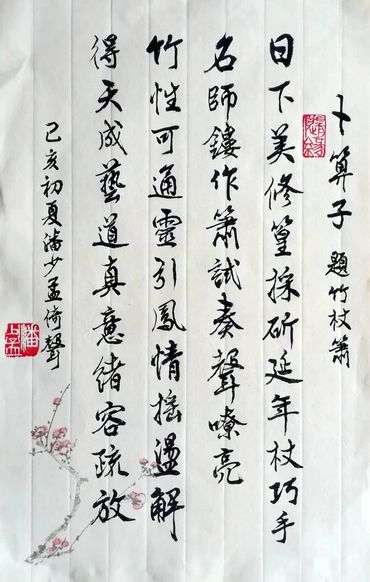 卜算子 題竹杖簫
日下美修篁採斫延年杖巧手
名師鏤作簫試奏聲嘹亮
竹性可通靈引鳳情搖盪解
得天成藝道真意緒容疏放
己亥初夏潘少孟倚聲